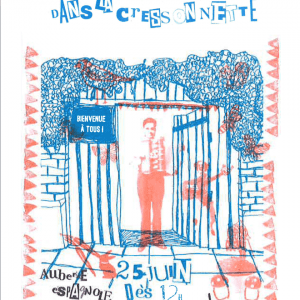 DANS LA CRESSONNETTE
BIENVENUE
À TOUS !
AUBERGE
ESPAGNOLE
25 JUIN
DÈS 12H